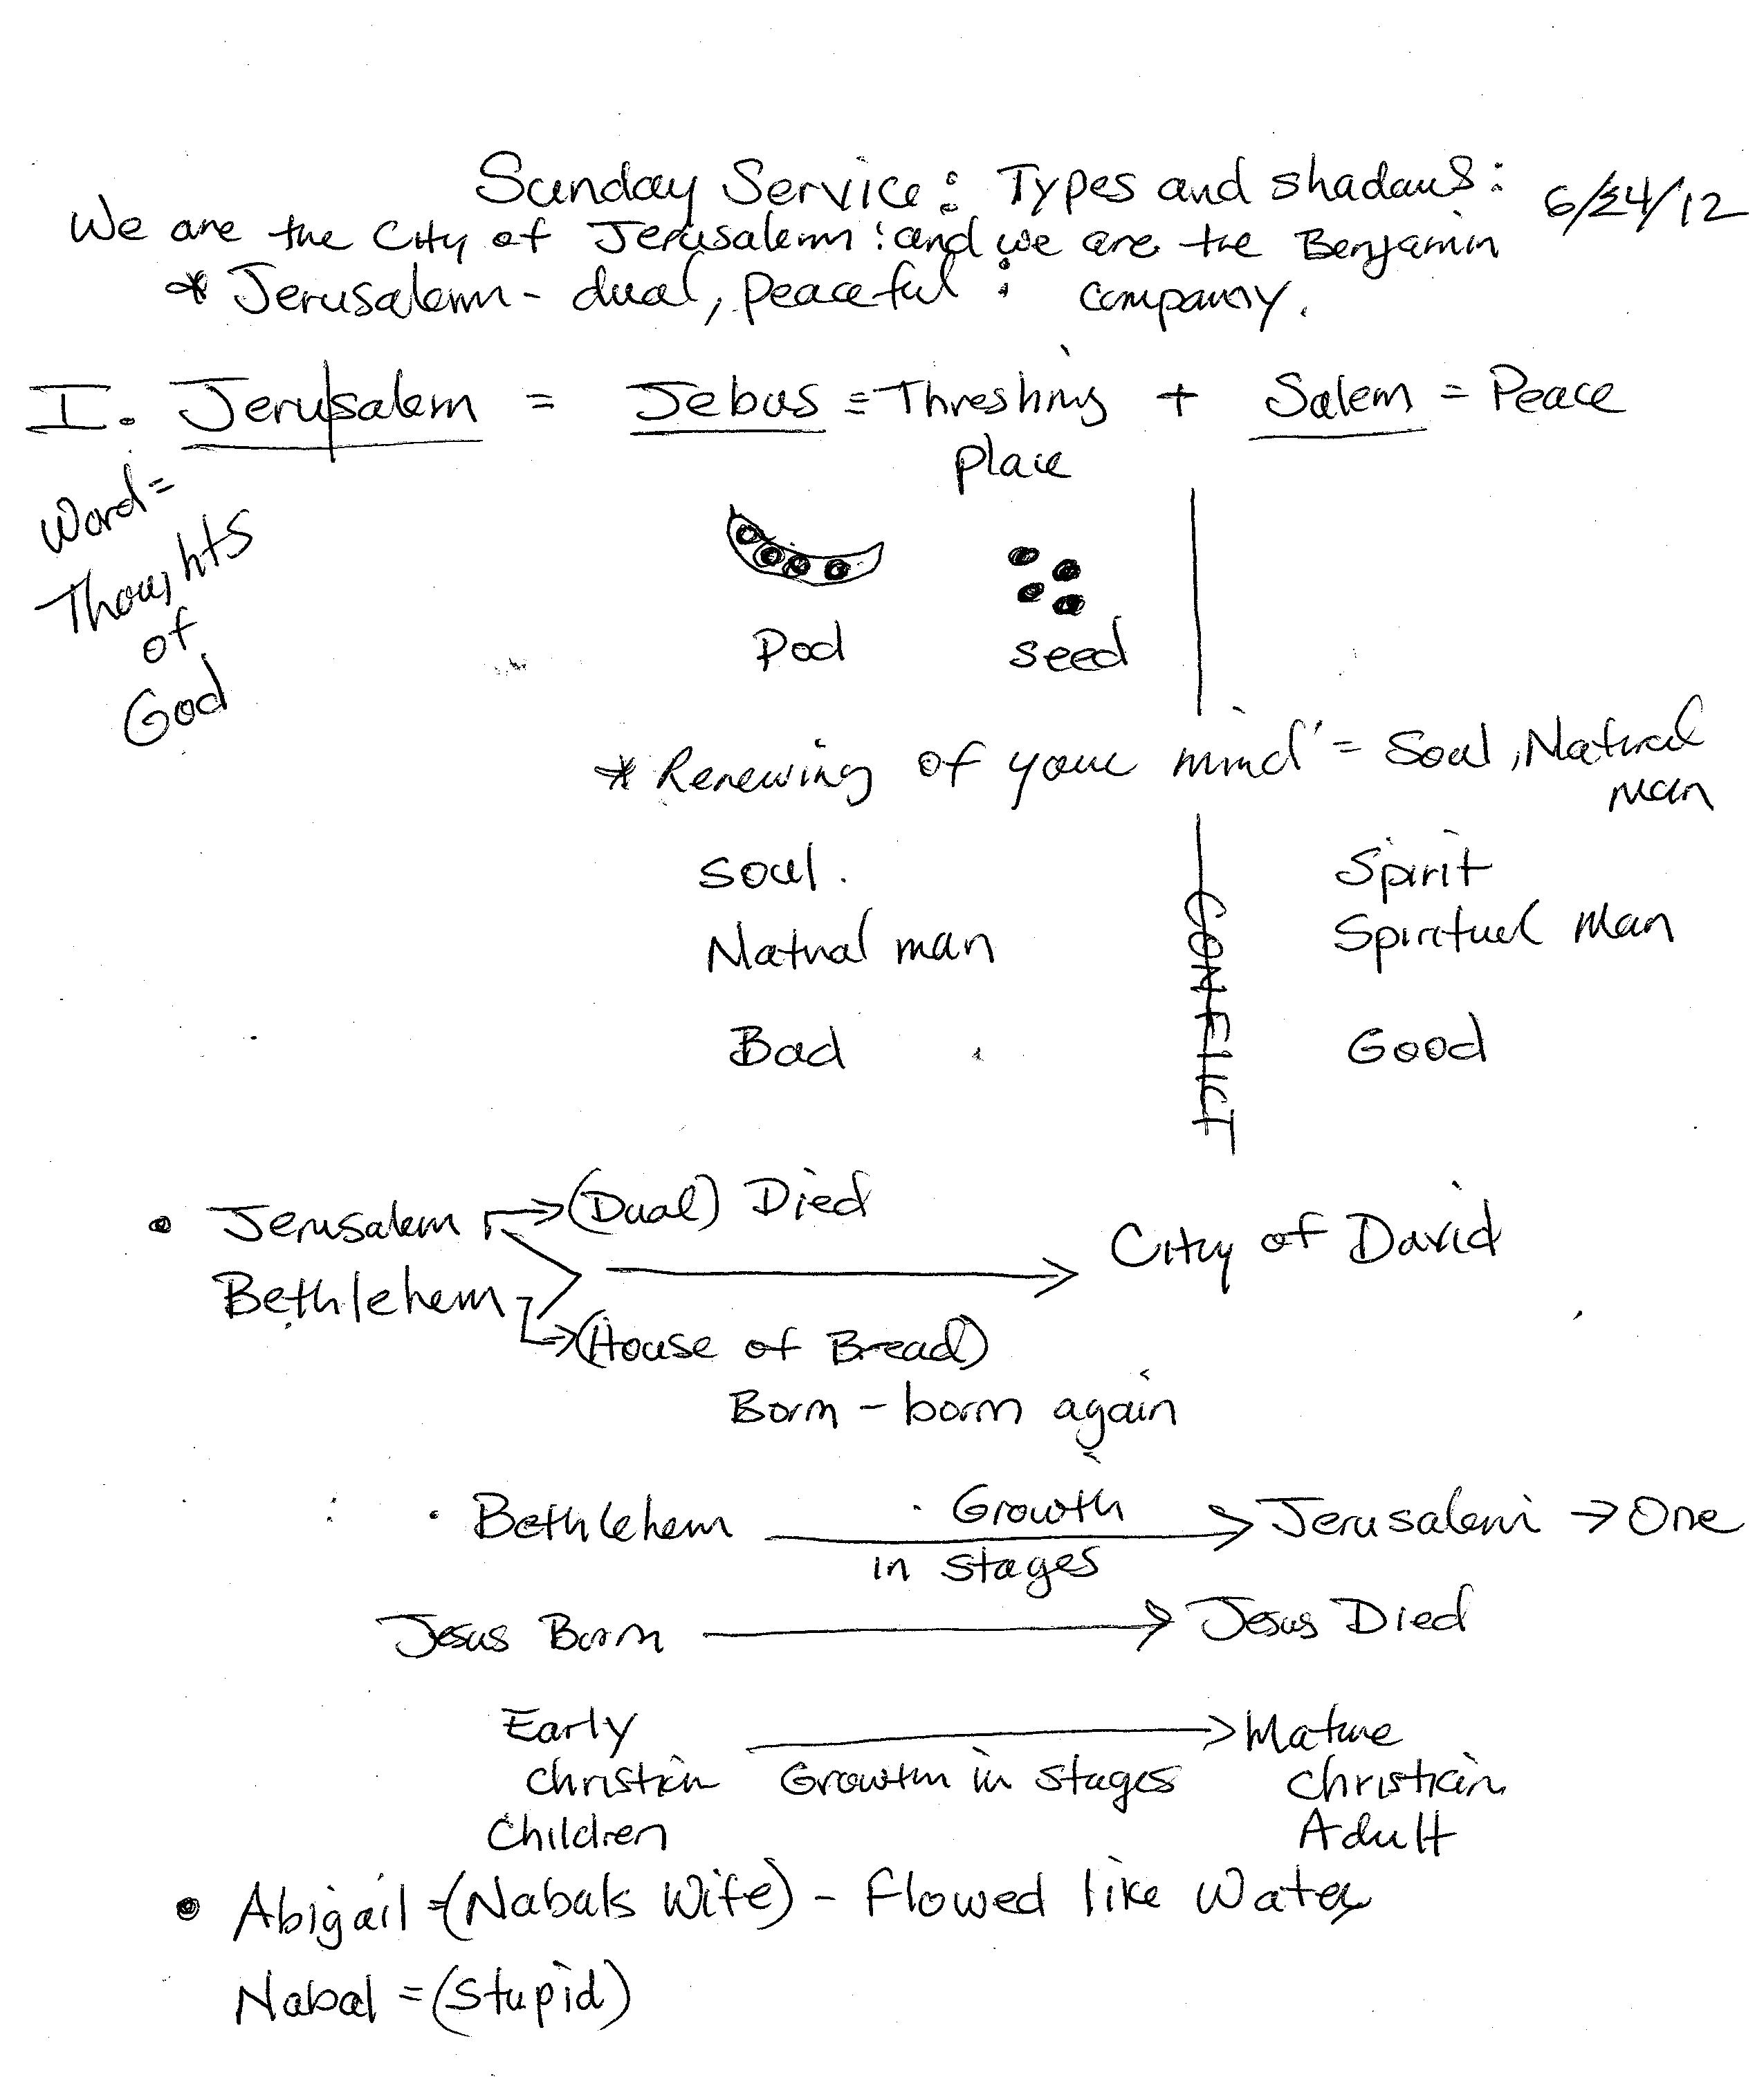 Sunday Service: Types and shadows: 6/24/12
We are the City of Jerusalem: and we are the Benjamin
* Jerusalem - dual, peaceful : company.
I. Jerusalem = Jebus = Threshing + Salem = Peace
place
Word =
Thoughts
of
God
Pod seed
* Renewing of your mind = Soul, Natural
man
Soul. Spirit
Natural man Spiritual Man
CONFLICT
Bad Good
• Jerusalem → (Dual) Died
→ City of David
Bethlehem → (House of Bread)
Born - born again
• Bethlehem Growth → Jerusalem → One
in stages
Jesus Born → Jesus Died
Early → Mature
Christian Growth in stages Christian
Children Adult
• Abigail = (Nabals Wife) - Flowed like Water
Nabal = (Stupid)